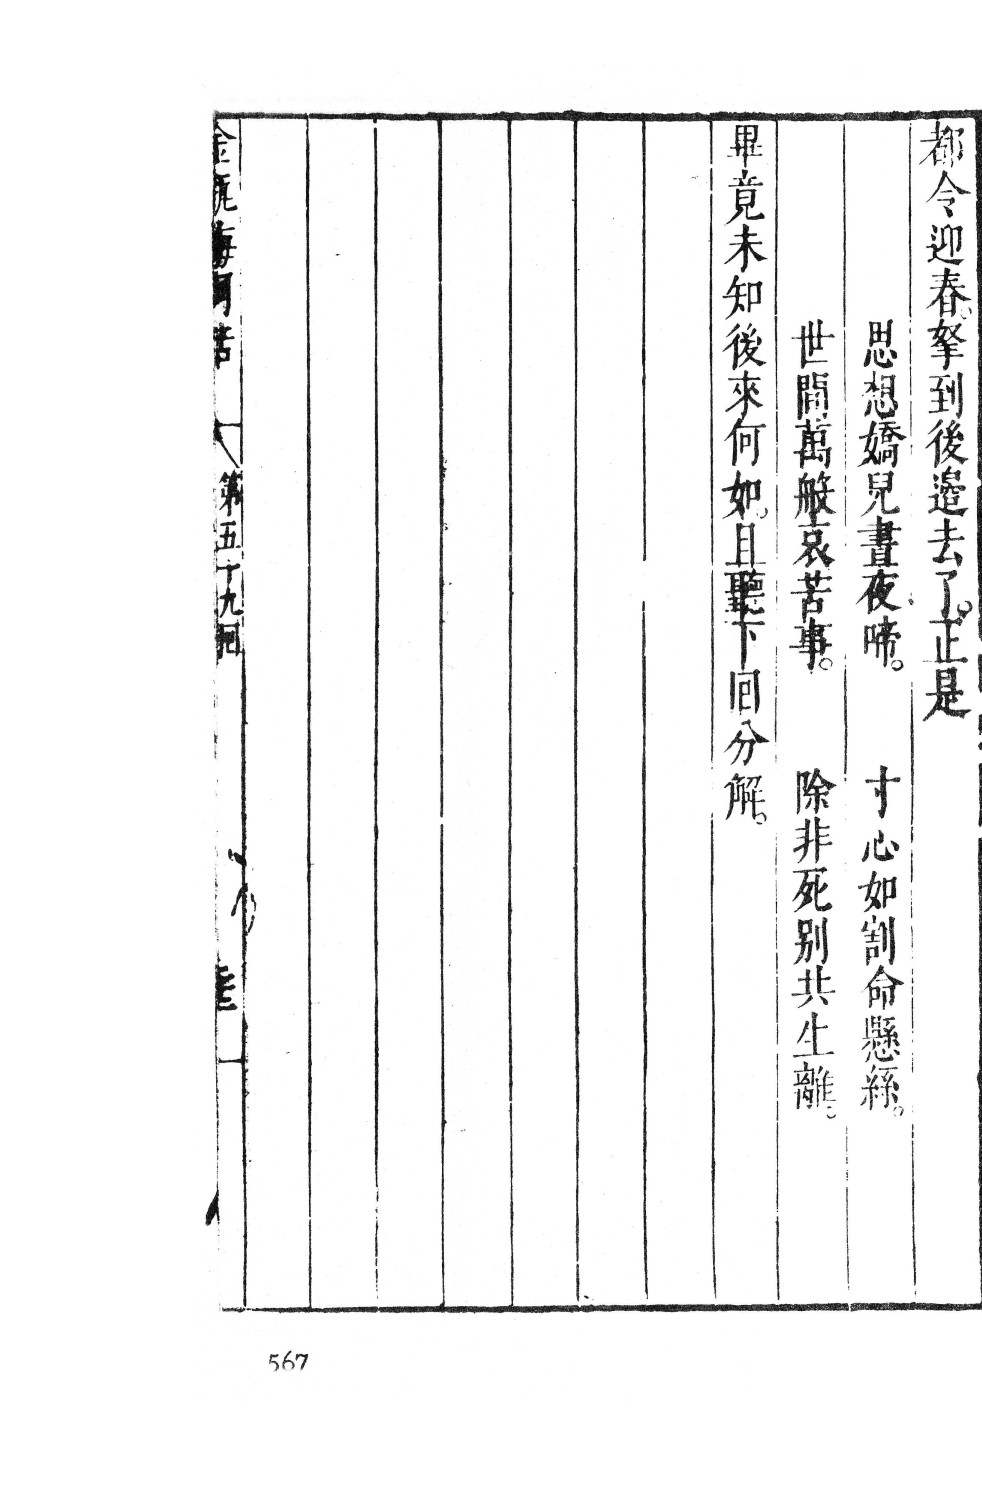 都令迎春。拏到後邉去了。正是
思想嬌兒晝夜啼。　寸心如割命懸絲。
世間萬般哀苦事。　除非死别共生離。
畢竟未知後來何如。且聽下囘分解。
金瓶梅詞話　第五十九囘
567